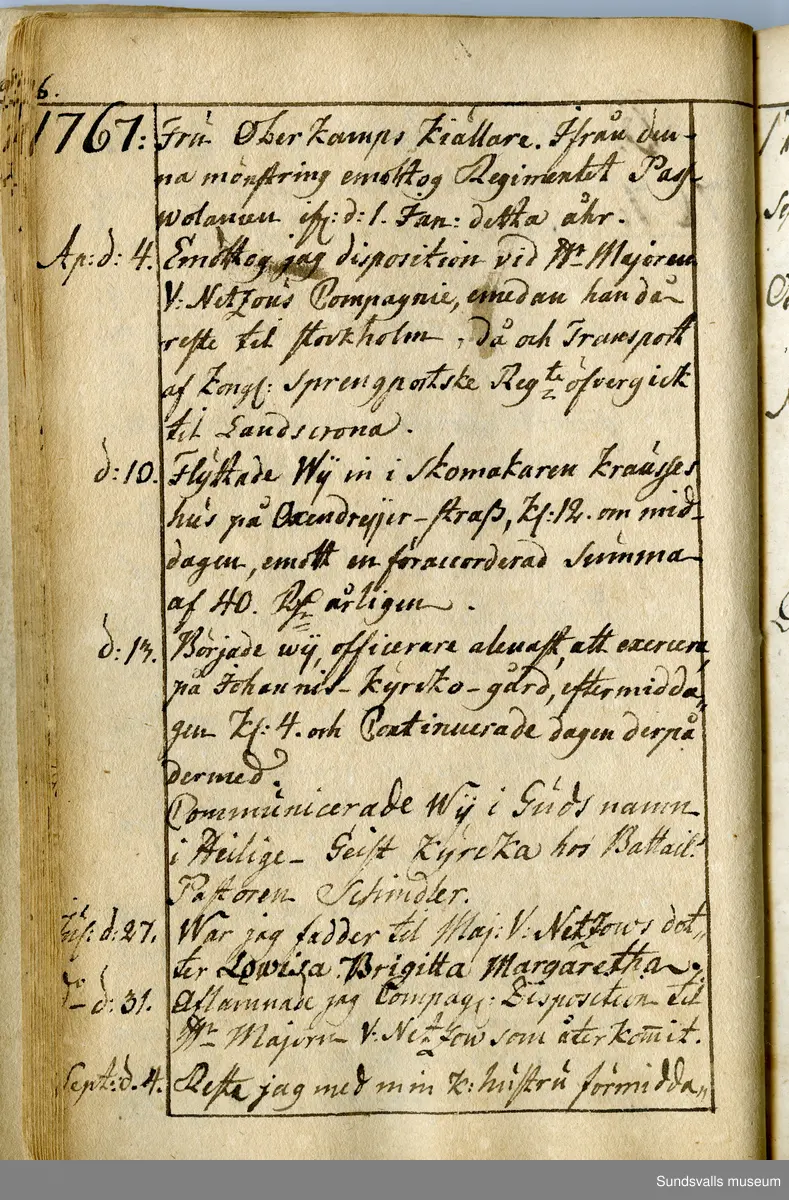 6.
1767: Fru Oberkamps Kiällare. Ifrån den-
na mönstring emottog Regimentet Pass-
wolamen ifr: d: 1. Jan: detta åhr.
Ap: d: 4. Emottog jag disposition vid Hr Majoren
V: Netzows Compagnie, emedan han då
reste til Stockholm, då och Transport
af Kongl: Sprengportske Reg:te öfvergick
til Landscrona.
d: 10. Flyttade Wij in i Skomakaren Krausses
hus på Oxendreyer-straß, Kl: 12. om mid-
dagen, emott en föraccorderad Summa
af 40. Rf årligen.
d: 13. Började wij, officerare alenast, att exercera
på Johannis-Kyrcko-gård, eftermidda-
gen Kl: 4. och Continuerade dagen derpå
dermed.
Communicerade Wij i Guds namn
i Heilige-Geist Kyrcka hos Battail:
Pastoren Schindler.
Jul: d: 27. War jag fadder til Maj: V: Netzows dot-
ter Lowisa Brigitta Margaretha.
Do d: 31. Aflämnade jag Compag: Disposition til
Hr Majorn V: Netzow som återkomit.
Sept: d. 4. Reste jag med min K: hustru förmidda-
Sundsvalls museum